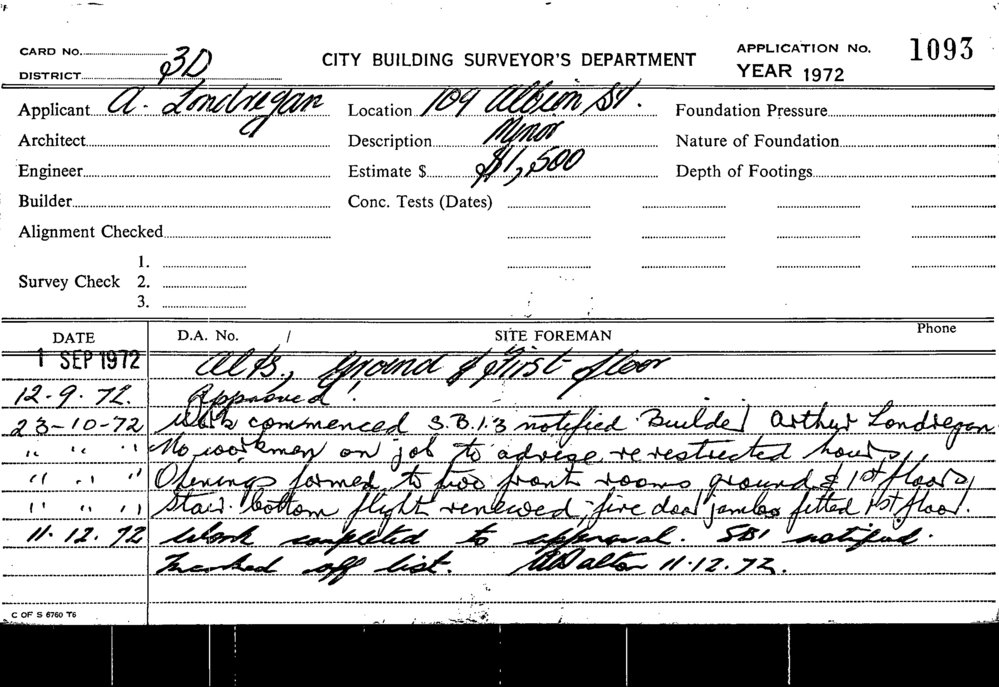 CARD NO.
DISTRICT 3D
CITY BUILDING SURVEYOR'S DEPARTMENT
APPLICATION No. 1093
YEAR 1972
Applicant A. Londregan
Location 109 Albion St.
Foundation Pressure
Architect
Description Minor
Nature of Foundation
Engineer
Estimate $ $1,500
Depth of Footings
Builder
Conc. Tests (Dates)
Alignment Checked
Survey Check
1.
2.
3.
DATE
D.A. No. /
SITE FOREMAN
Phone
1 SEP 1972 Alts., ground & first floor
12-9-72. Approved.
23-10-72 Work commenced S.B.I.3 notified Builder Arthur Londregan.
" " " No workmen on job to advise re restricted hours,
" " " Openings formed to two front rooms ground & 1st floors,
" " " Stair bottom flight renewed, fire door jambs fitted 1st floor.
11.12.72 Work completed to approval. SBI notified.
Marked off list. Dalton 11.12.72.
C OF S 6760 T6